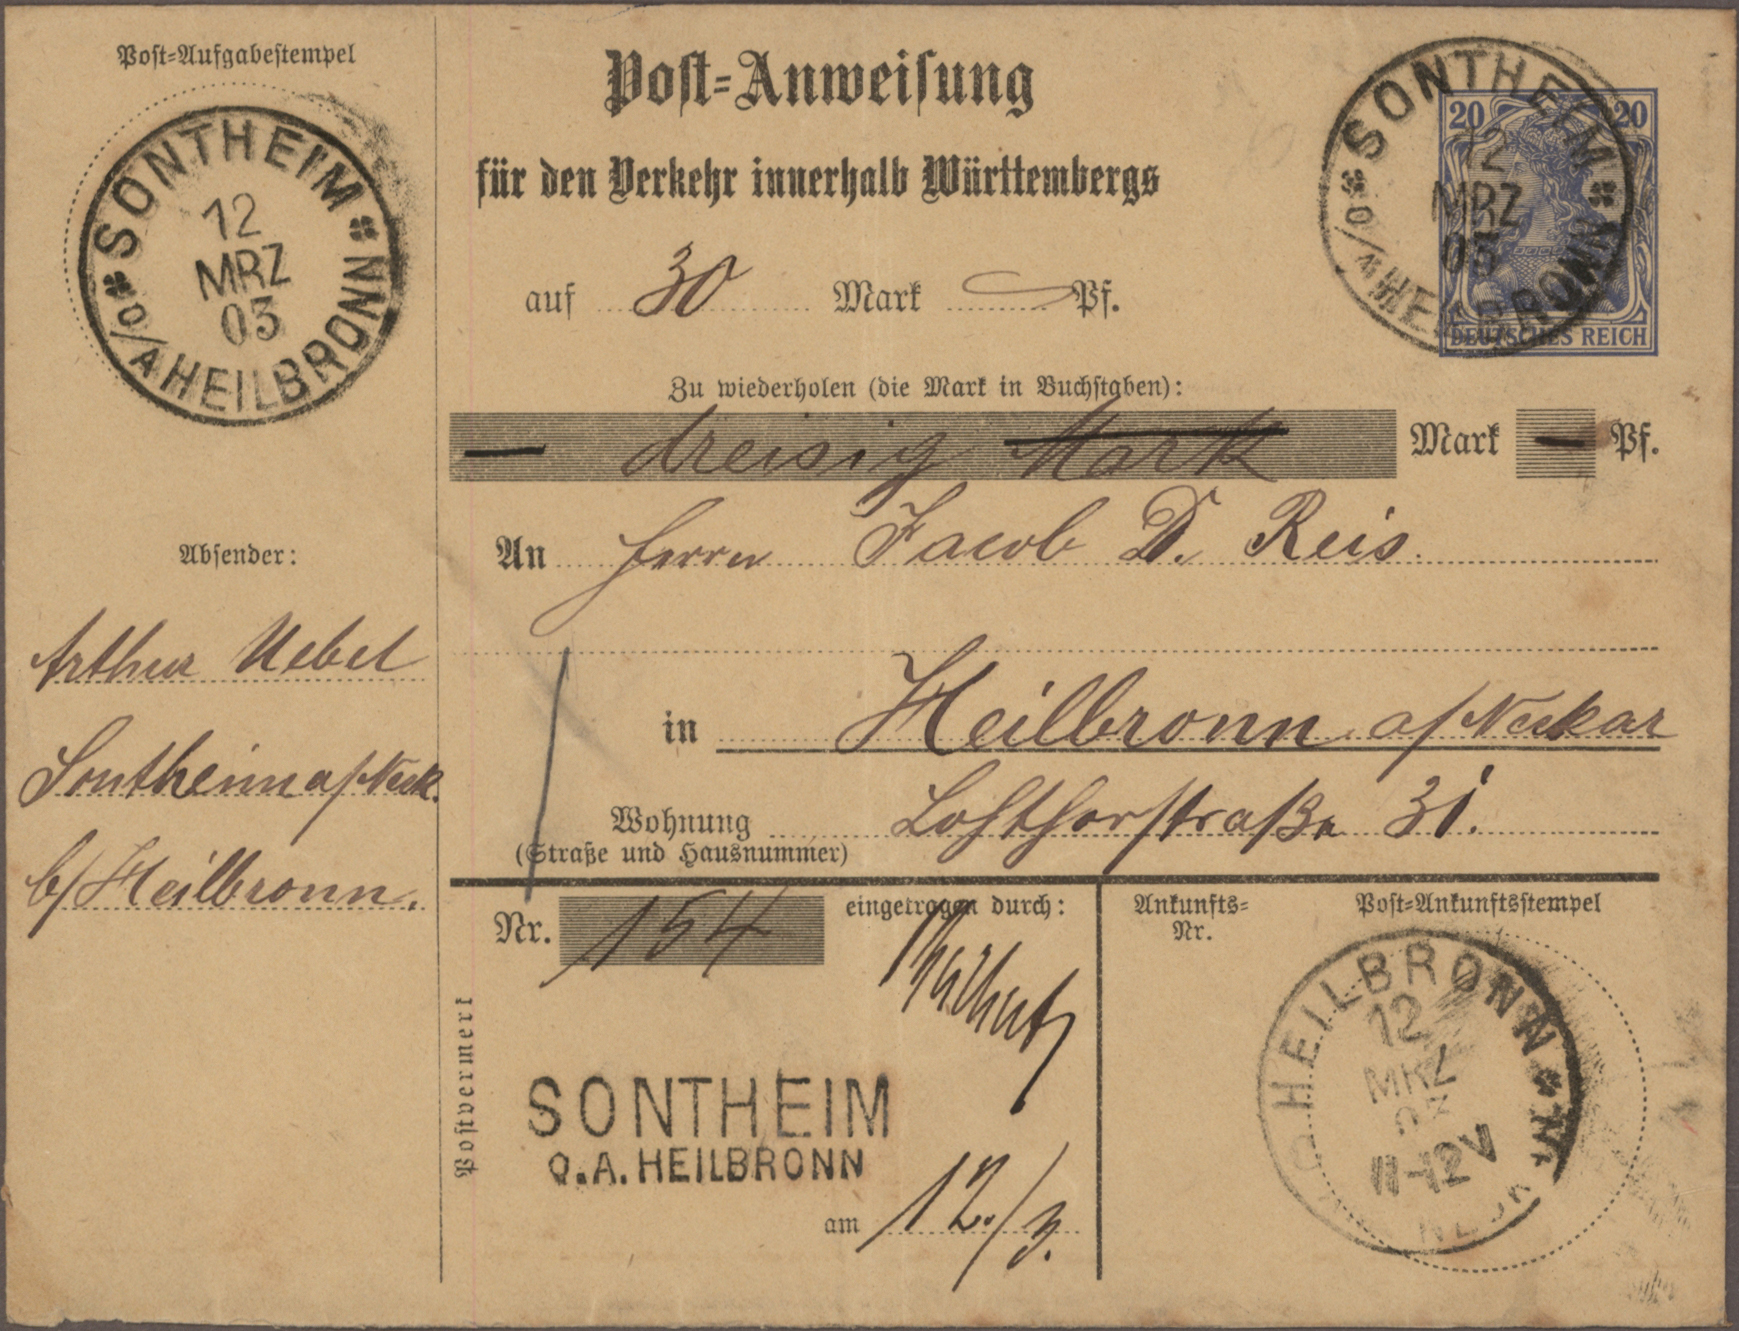 Post-Aufgabestempel
SONTHEIM
12
MRZ
03
O/A HEILBRONN
Post-Anweisung
für den Verkehr innerhalb Württembergs
auf 30 Mark Pf.
20 20
DEUTSCHES REICH
SONTHEIM
12
MRZ
03
O/A HEILBRONN
Zu wiederholen (die Mark in Buchstaben):
— dreisig Mark Mark — Pf.
Absender:
Arthur Uebel
Sontheim a/Neck.
b/Heilbronn.
An Herrn Jacob D. Reis.
in Heilbronn a/Neckar
Wohnung Lohthorstraße 31.
(Straße und Hausnummer)
Postvermerk
Nr. 154
eingetragen durch:
SONTHEIM
O.A. HEILBRONN
am 12./3.
Ankunfts-
Nr.
Post-Ankunftsstempel
HEILBRONN
12
MRZ
03
11-12V